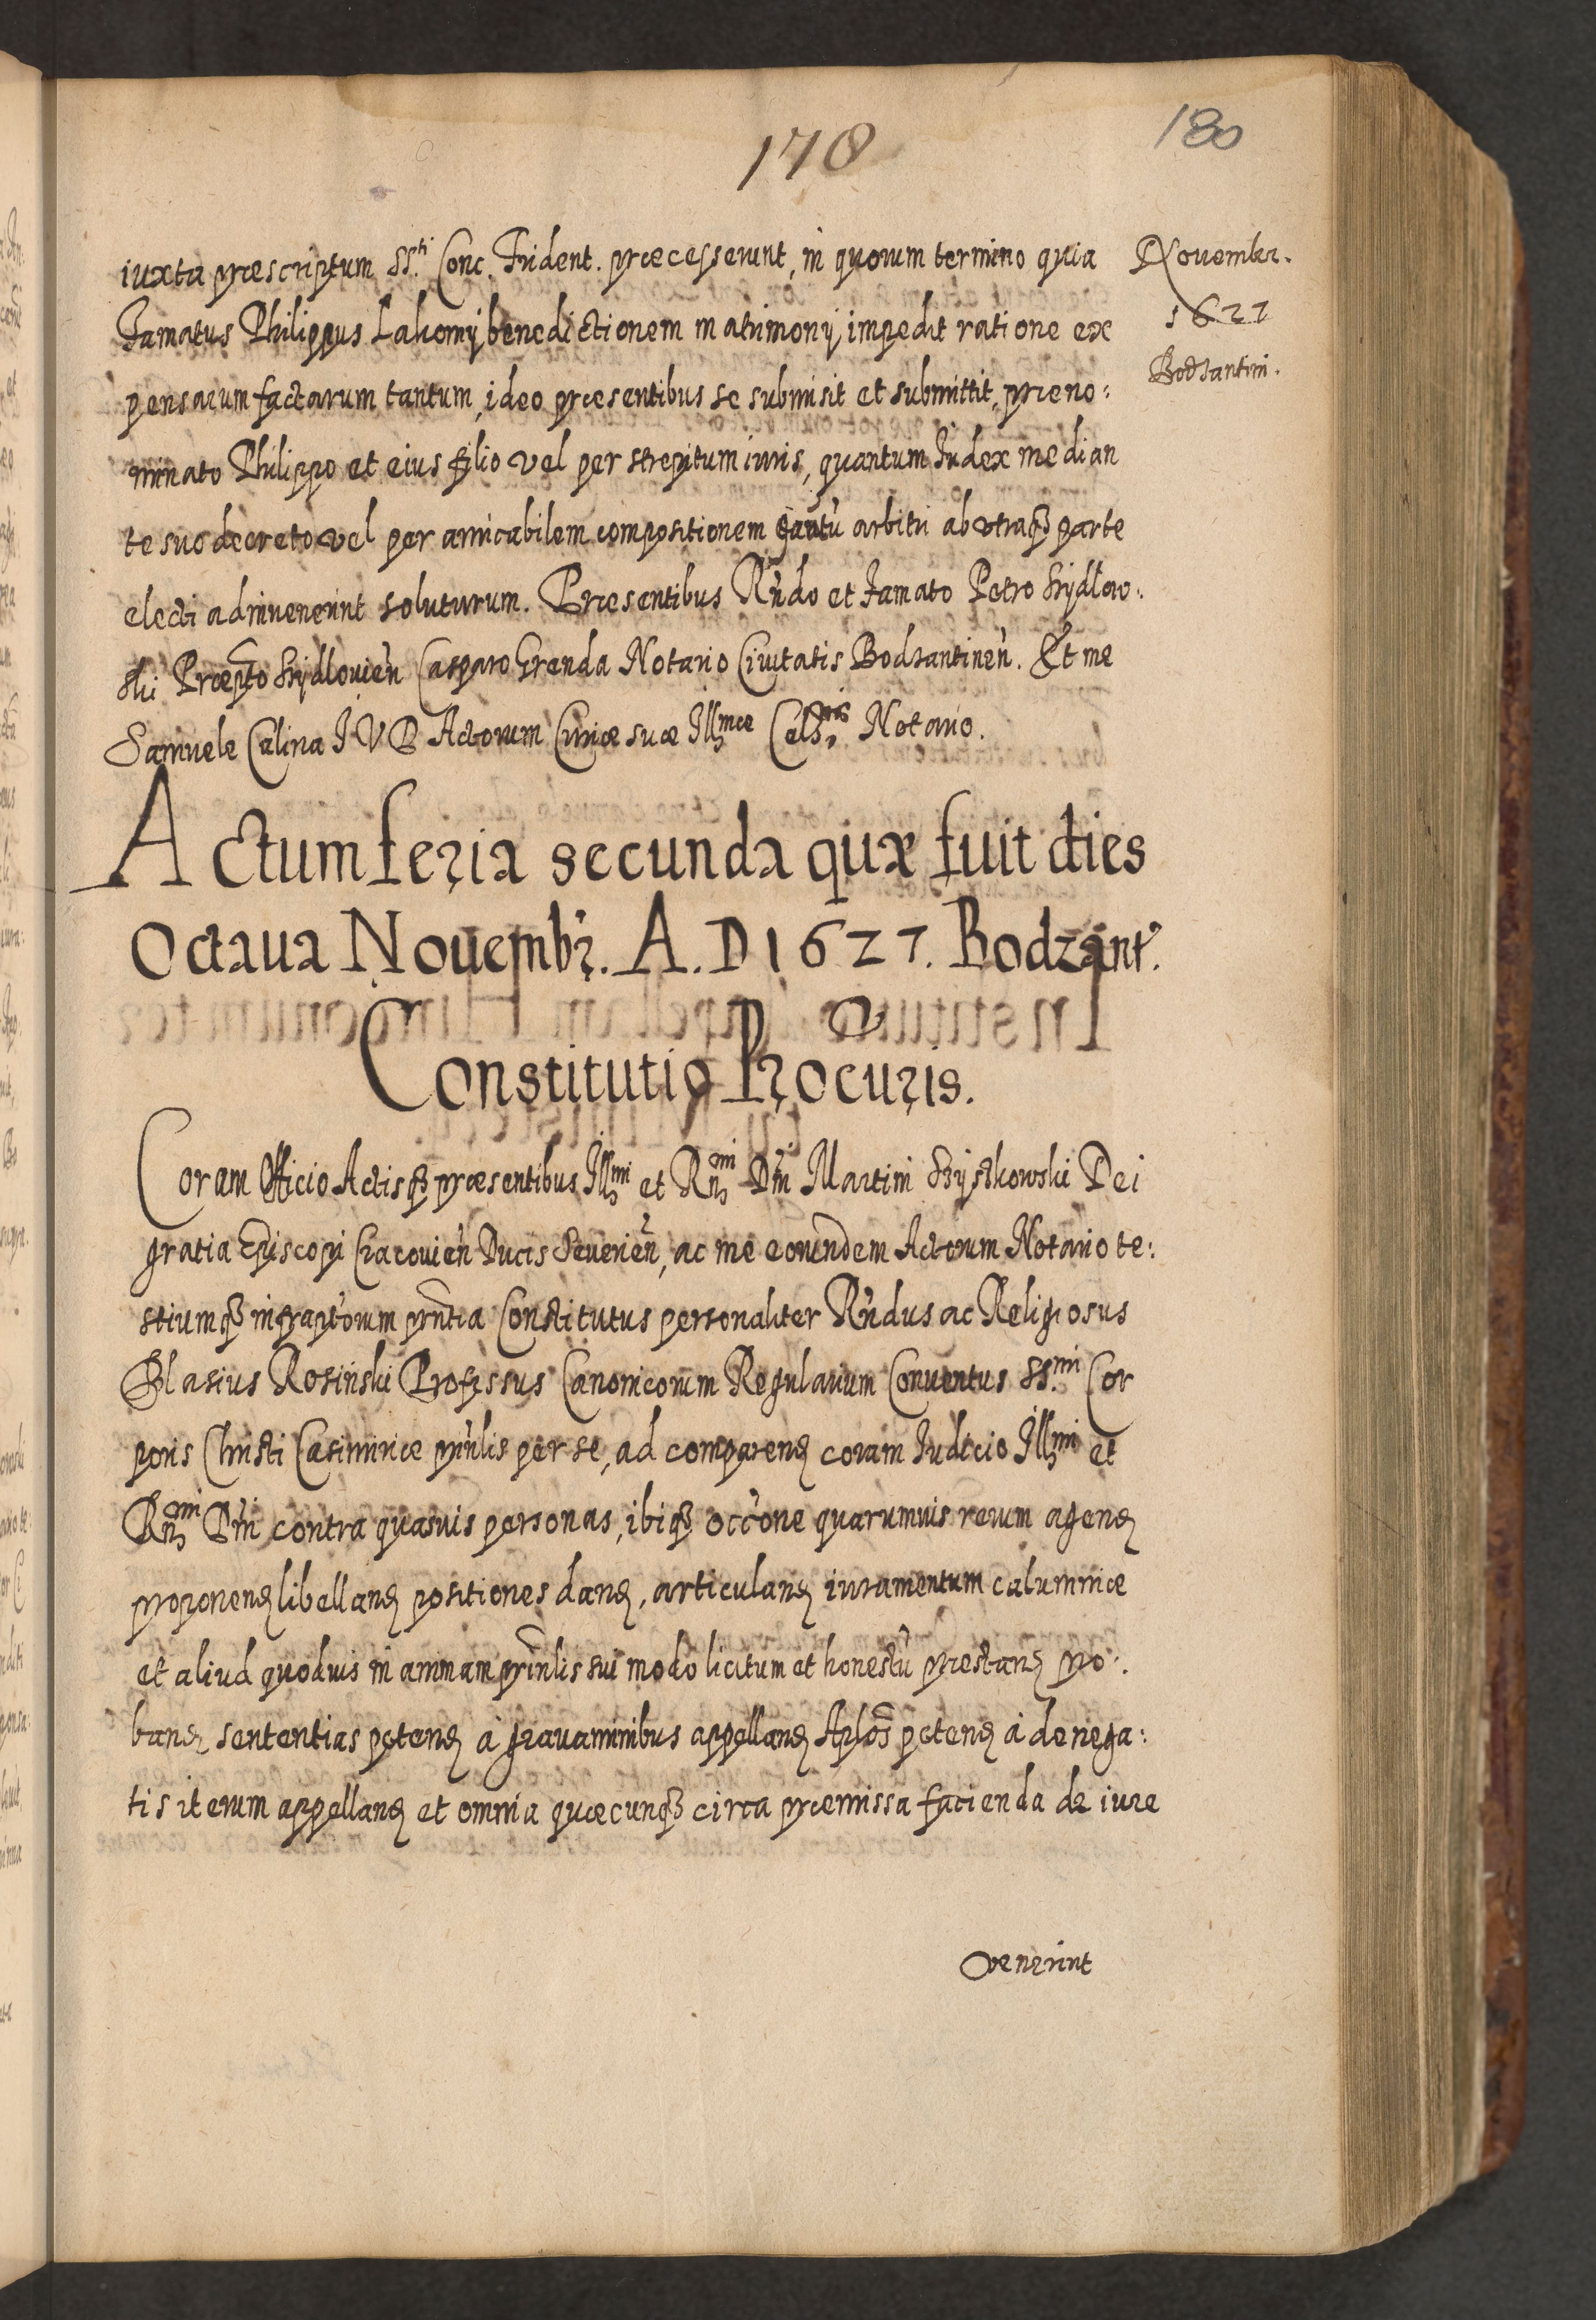 178
180
November.
1627
Bodzantini.
iuxta præscriptum SS.ti Conc. Trident. præcesserunt, in quorum termino quia
Famatus Philippus Lakomy benedictionem matrimonij impedit ratione ex
pensarum factarum tantum, ideo præsentibus se submisit et submittit, præno:
minato Philippo et eius filio vel per strepitum iuris, quantum Iudex median
te suo decreto vel per amicabilem compositionem qantũ arbitri ab utraqȝ parte
electi adinvenerint soluturum. Præsentibus Rndo et Famato Petro Szydlow:
ski Præpto Szydlovien Casparo Grenda Notario Civitatis Bodzantinen. Et me
Samuele Calina I V D Actorum Curiæ suæ Illmæ Cels.nis Notario.
Actum feria secunda quæ fuit dies
Octaua Nouembr. A. D 1627. Bodzant.
Constitutio Procuris.
Coram Officio Actisqȝ præsentibus Illmi et Rnmi Dni Martini Szyszkowski Dei
gratia Episcopi Cracovien Ducis Severien, ac me eorundem Actorum Notario te:
stiumqȝ infraptorum pntia Constitutus personaliter Rndus ac Religiosus
Blasius Rosinski Professus Canonicorum Regularium Conventus SS.mi Cor
poris Christi Casimiriæ prinlis per se, ad comparend coram Iudicio Illmi et
Rnmi Dni contra quasvis personas, ibiqȝ occone quarumvis rerum agend
proponend libelland positiones dand, articuland iuramentum calumniæ
et aliud quodvis in animam prinlis sui modo licitum et honestũ præstand pro:
band sententias petend à gravaminibus appelland Aplos petend à denega:
tis iterum appelland et omnia quæcunqȝ circa præmissa facienda de iure
venerint